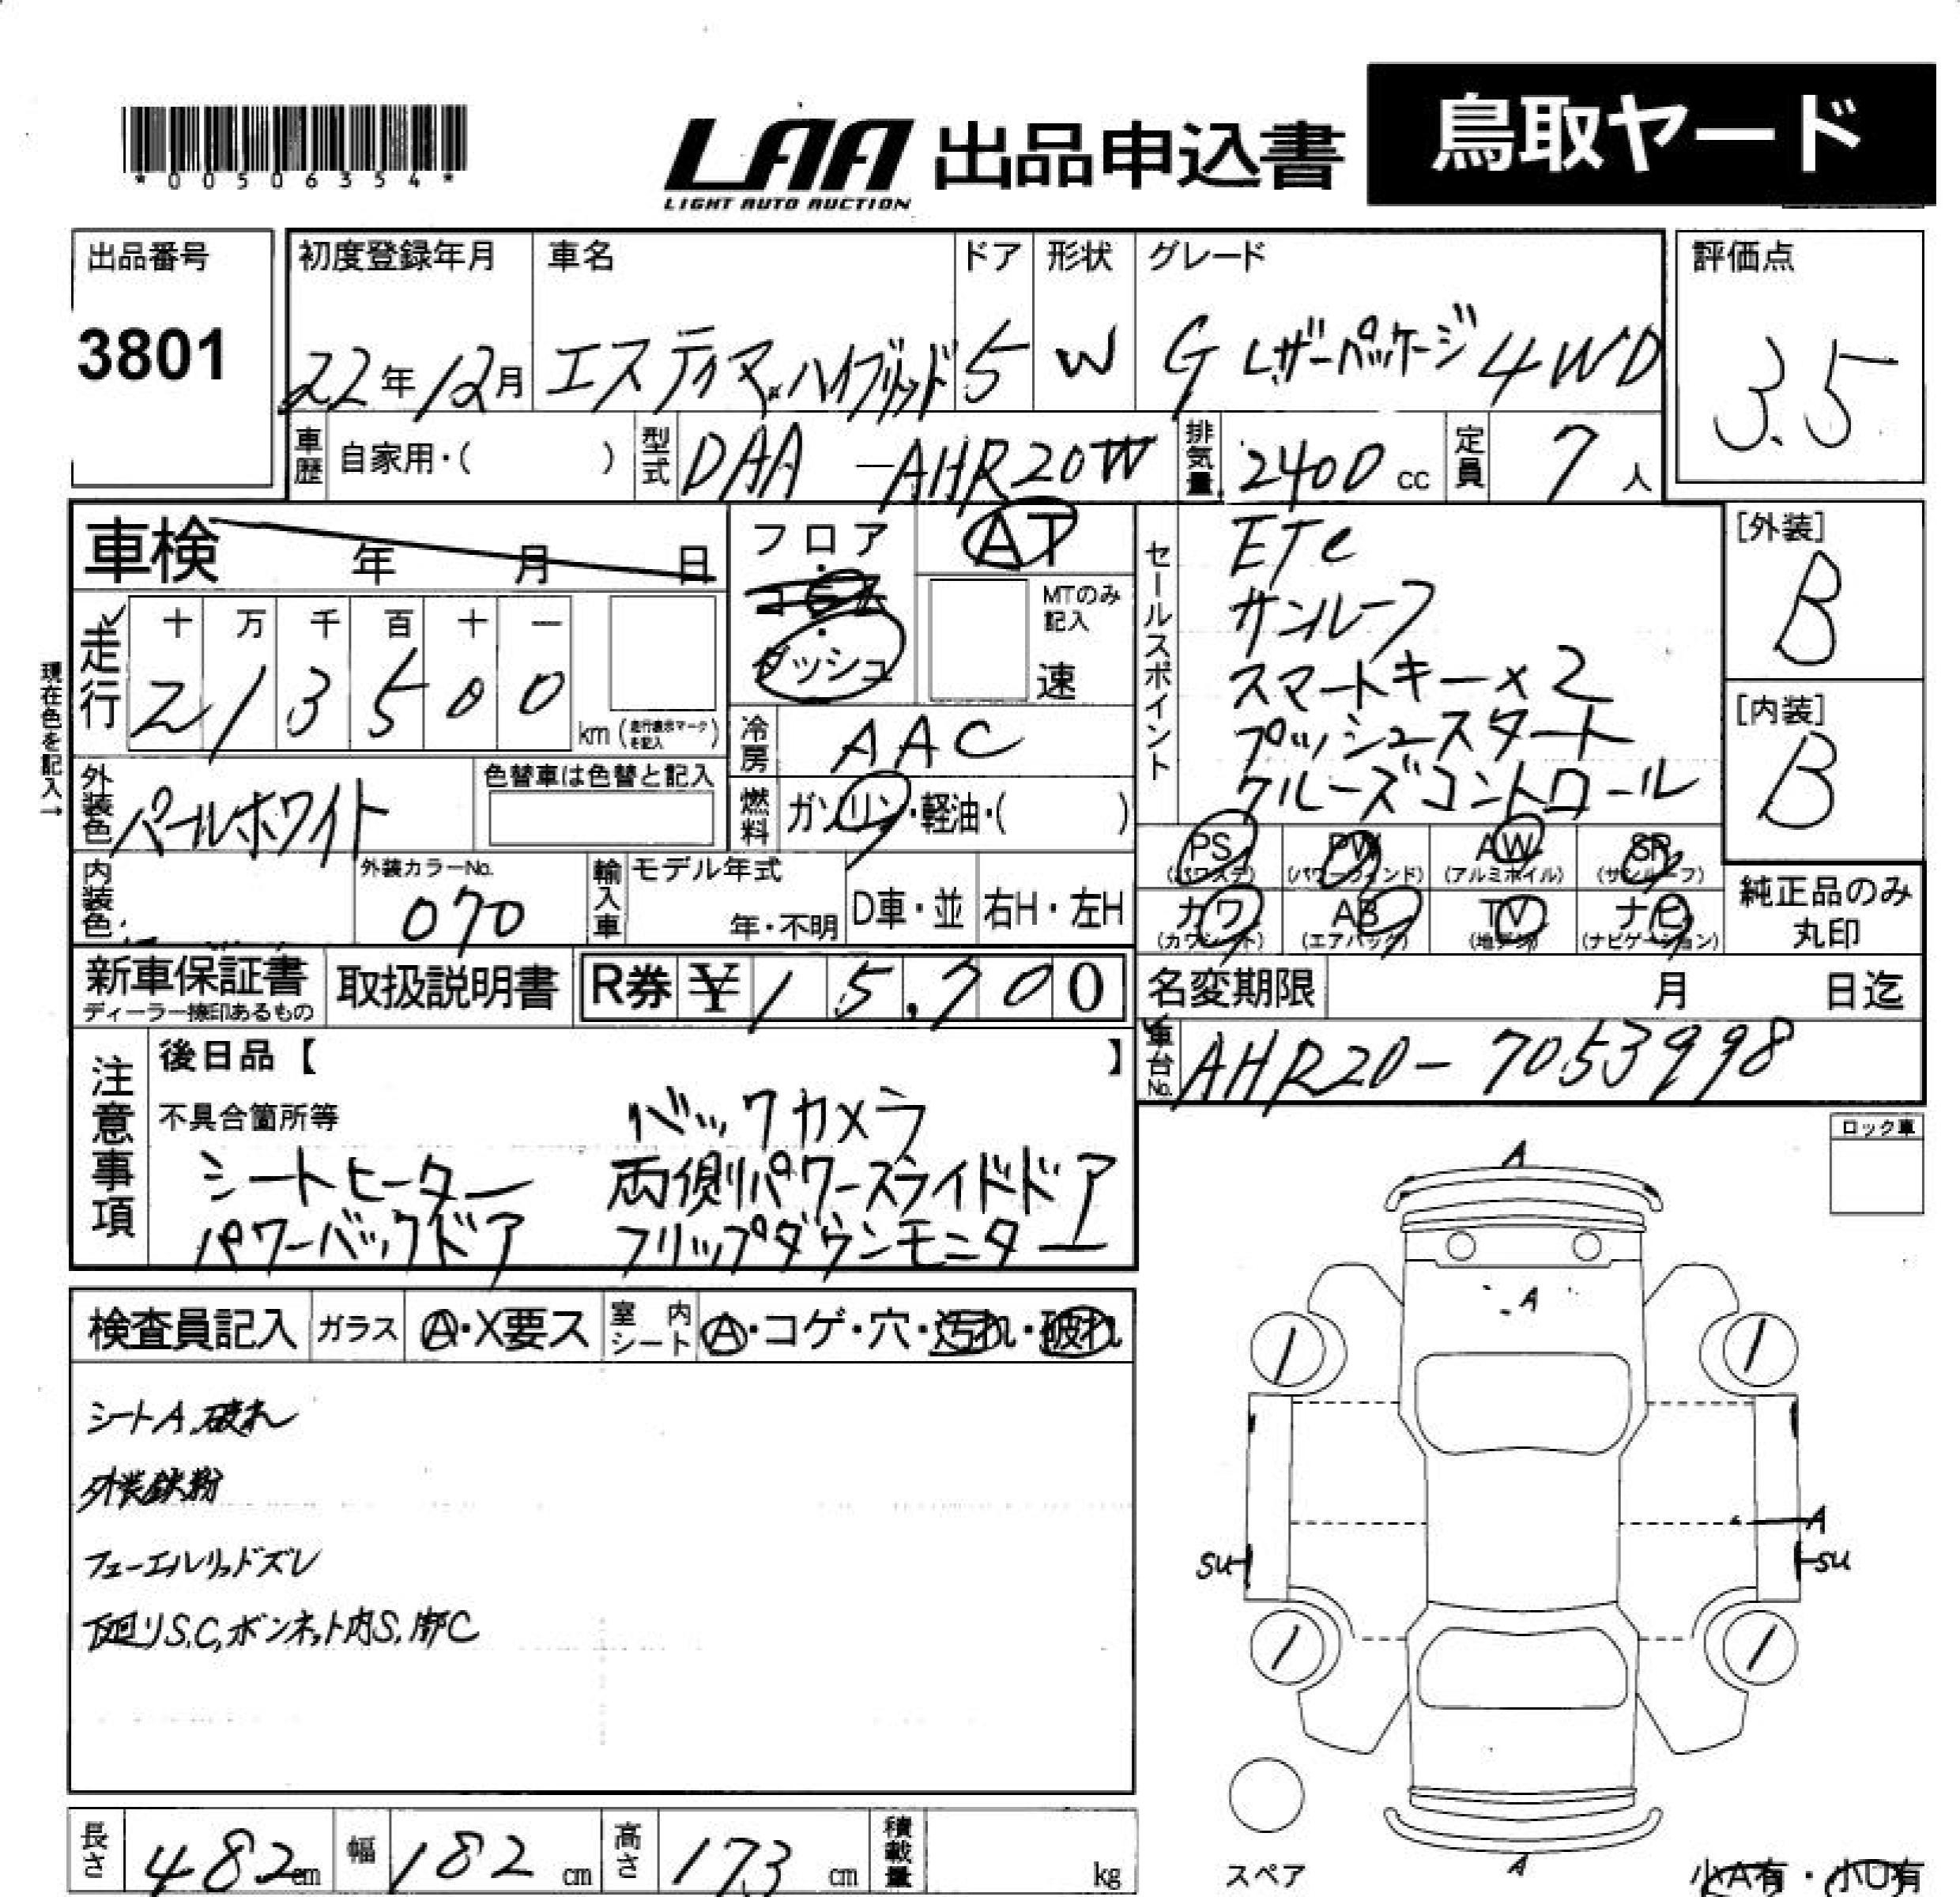 *00506354*
LAA 出品申込書 鳥取ヤード
LIGHT AUTO AUCTION
出品番号 初度登録年月 車名 ドア 形状 グレード 評価点
3801 22年12月 エスティマハイブリッド 5 W G レザーパッケージ 4WD 3.5
車歴 自家用・( ) 型式 DAA-AHR20W 排気量 2400 cc 定員 7人
車検 年 月 日
フロア・コラム・ダッシュ
AT
MTのみ記入
速
セールスポイント
ETC
サンルーフ
スマートキー×2
プッシュスタート
クルーズコントロール
[外装]
B
[内装]
B
走行 十 万 千 百 十 一
2 1 3 5 0 0
km (走行表示マークを記入)
現在色を記入→
冷房 AAC
外装色 パールホワイト 色替車は色替と記入
燃料 ガソリン・軽油・( )
PS (パワステ) PW (パワーウィンド) AW (アルミホイル) SR (サンルーフ)
カワ (カワシート) AB (エアバック) TV (地デジ) ナビ (ナビゲーション)
純正品のみ
丸印
内装色 外装カラーNo. 070 輸入車 モデル年式 年・不明 D車・並 右H・左H
新車保証書 取扱説明書 R券 ¥ 15,700
ディーラー捺印あるもの
名変期限 月 日迄
車台No. AHR20-7053998
注意事項
後日品【 】
不具合箇所等 バックカメラ
シートヒーター 両側パワースライドドア
パワーバックドア フリップダウンモニター
ロック車
検査員記入 ガラス A・X要ス 室内シート A・コゲ・穴・汚れ・破れ
シートA.破れ
外装鉄粉
フューエルリッドズレ
下廻りS.C,ボンネット内S.
A
A
1 1
A
SU SU
1 1
A
スペア 小A有・小U有
長さ 482cm 幅 182cm 高さ 173cm 積載量 kg